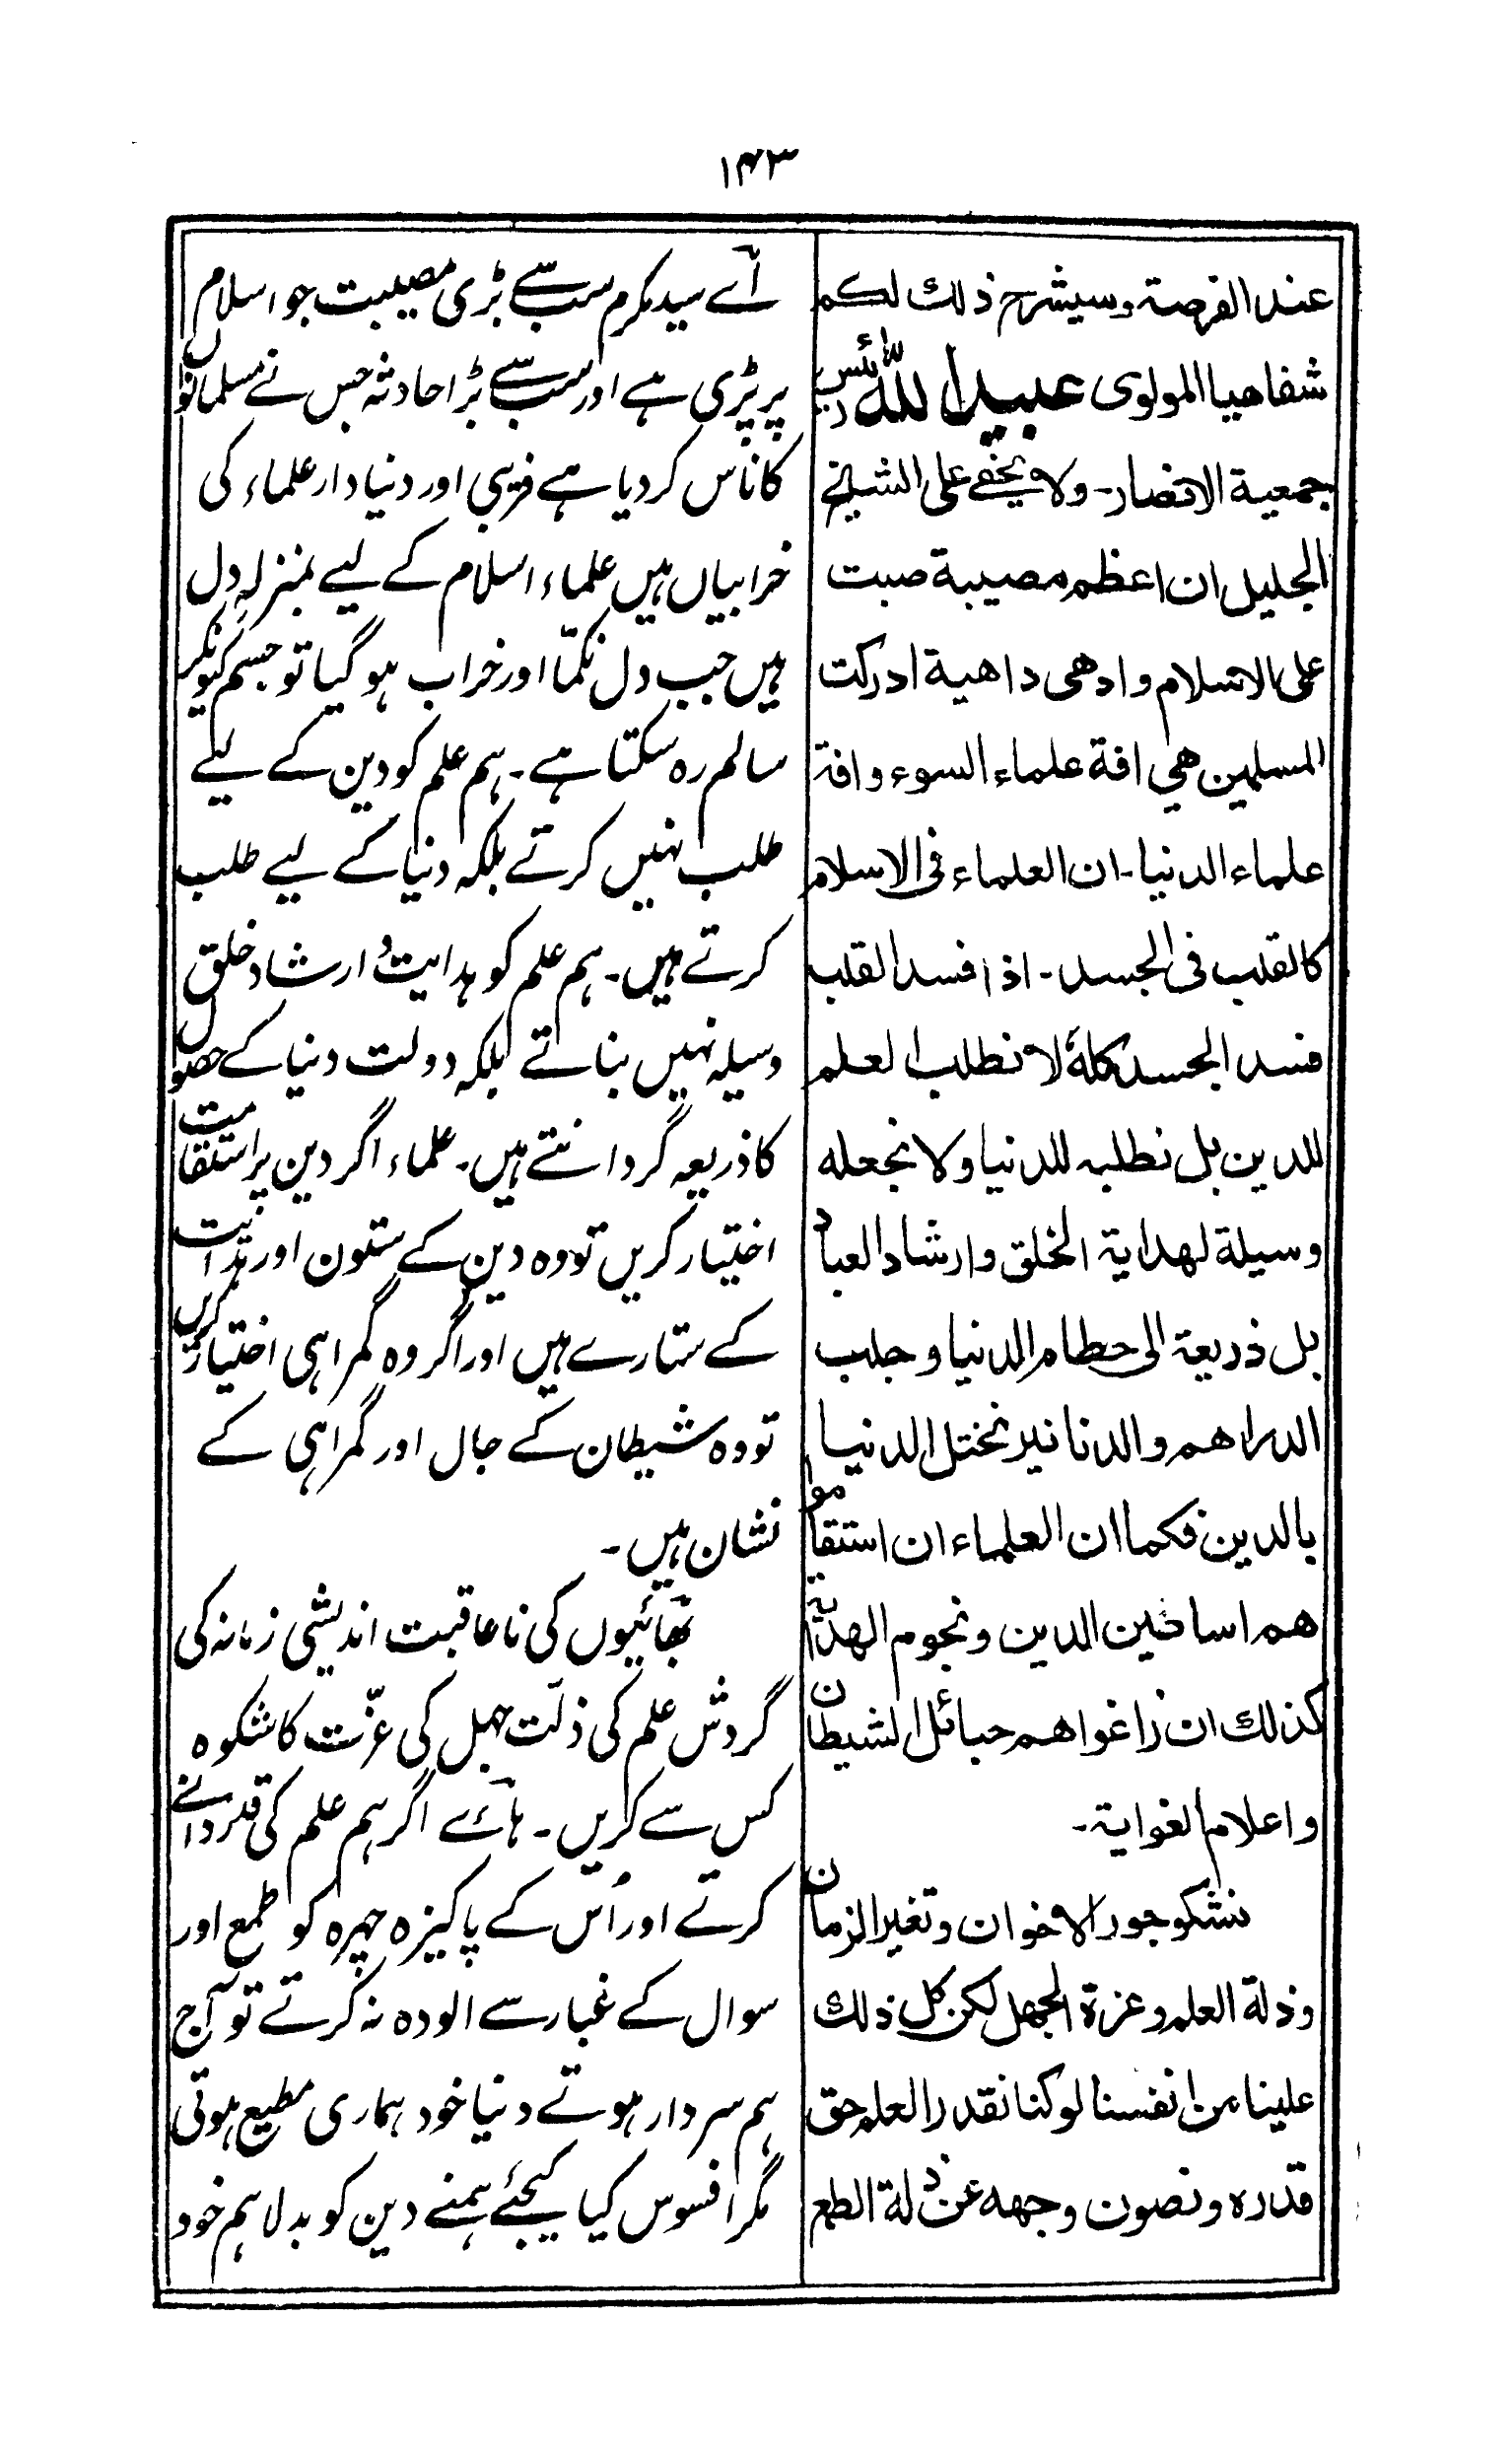 ۱۴۳
عند الفرصة وسيشرح ذلك لكم
شفاهيا المولوى عبيد الله رئيس
جمعية الانصار۔ ولا يخفے على الشيخ
الجليل ان اعظم مصيبة صبت
على الاسلام وادهى داهية ادركت
المسلمين هي افة علماء السوء وافة
علماء الدنيا۔ ان العلماء فى الاسلام
كالقلب فى الجسد۔ اذا فسد القلب
فسد الجسد كلهٗ لا نطلب العلم
للدين بل نطلبه للدنيا ولا نجعله
وسيلة لهداية الخلق وارشاد العباد
بل ذريعة الى حطام الدنيا وجلب
الدراهم والدنانير نختل الدنيا
بالدين فكما ان العلماء ان استقاموا
هم اساطين الدين ونجوم الهداية
كذلك ان زاغوا هم حبائل الشيطان
واعلام الغواية۔
نشكو جور الاخوان وتغير الزمان
وذلة العلم وعزة الجهل لكن كل ذلك
علينا من انفسنا لو كنا نقدر العلم حق
قدره ونصون وجهه عن ذلة الطمع
اَے سید مکرم سب سے بڑی مصیبت جو اسلام
پر پڑی ہے اور سب سے بڑا حادثہ جس نے مسلمانوں
کا ناس کر دیا ہے فریبی اور دنیا دار علماء کی
خرابیاں ہیں علماء اسلام کے لیے بمنزلہ دل
ہیں جب دل نکمّا اور خراب ہو گیا تو جسم کیونکر
سالم رہ سکتا ہے۔ ہم علم کو دین کے لیے
طلب نہیں کرتے بلکہ دنیا کے لیے طلب
کرتے ہیں۔ ہم علم کو ہدایت و ارشاد خلق
وسیلہ نہیں بناتے بلکہ دولت دنیا کے حصول
کا ذریعہ گردانتے ہیں۔ علماء اگر دین پر استقامت
اختیار کریں تو وہ دین کے ستون اور ہدایت
کے ستارے ہیں اور اگر وہ گمراہی اختیار کریں
تو وہ شیطان کے جال اور گمراہی کے
نشان ہیں۔
بھائیوں کی ناعاقبت اندیشی زمانہ کی
گردش علم کی ذلت جہل کی عزّت کا شکوہ
کس سے کریں۔ ہائے اگر ہم علم کی قدردانے
کرتے اور اُس کے پاکیزہ چہرہ کو طمع اور
سوال کے غبار سے الودہ نہ کرتے تو آج
ہم سردار ہوتے دنیا خود ہماری مطیع ہوتی
مگر افسوس کیا کیجئے ہمنے دین کو بدلا ہم خود